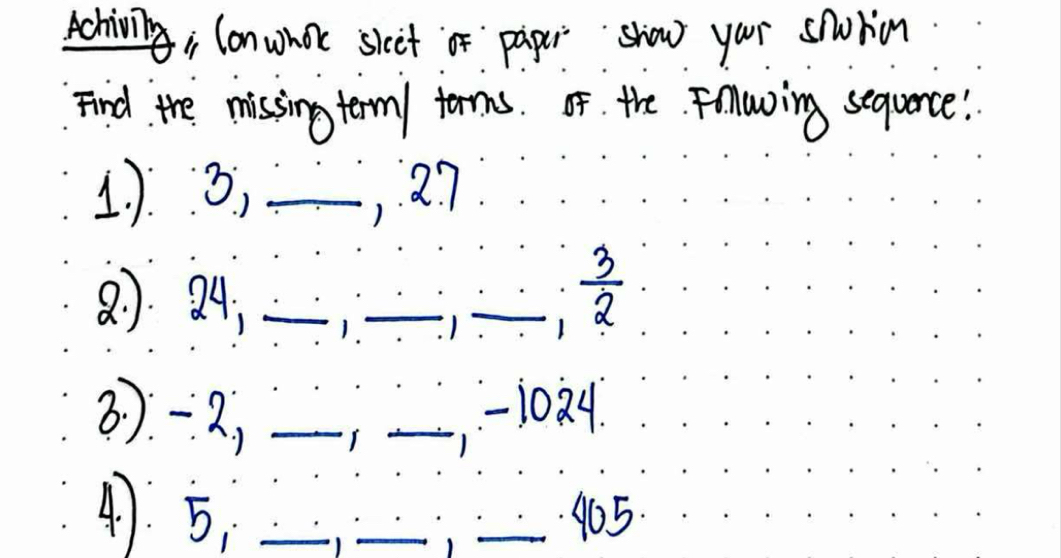 Activity: (on whole sleet of paper show your solution
Find the missing term/ terms. of the Following sequence:
1.) 3, ___, 27
2.) 24, ___, ___, ___, 3/2
3.) -2, ___, ___, -1024
4.) 5, ___, ___, ___ 405